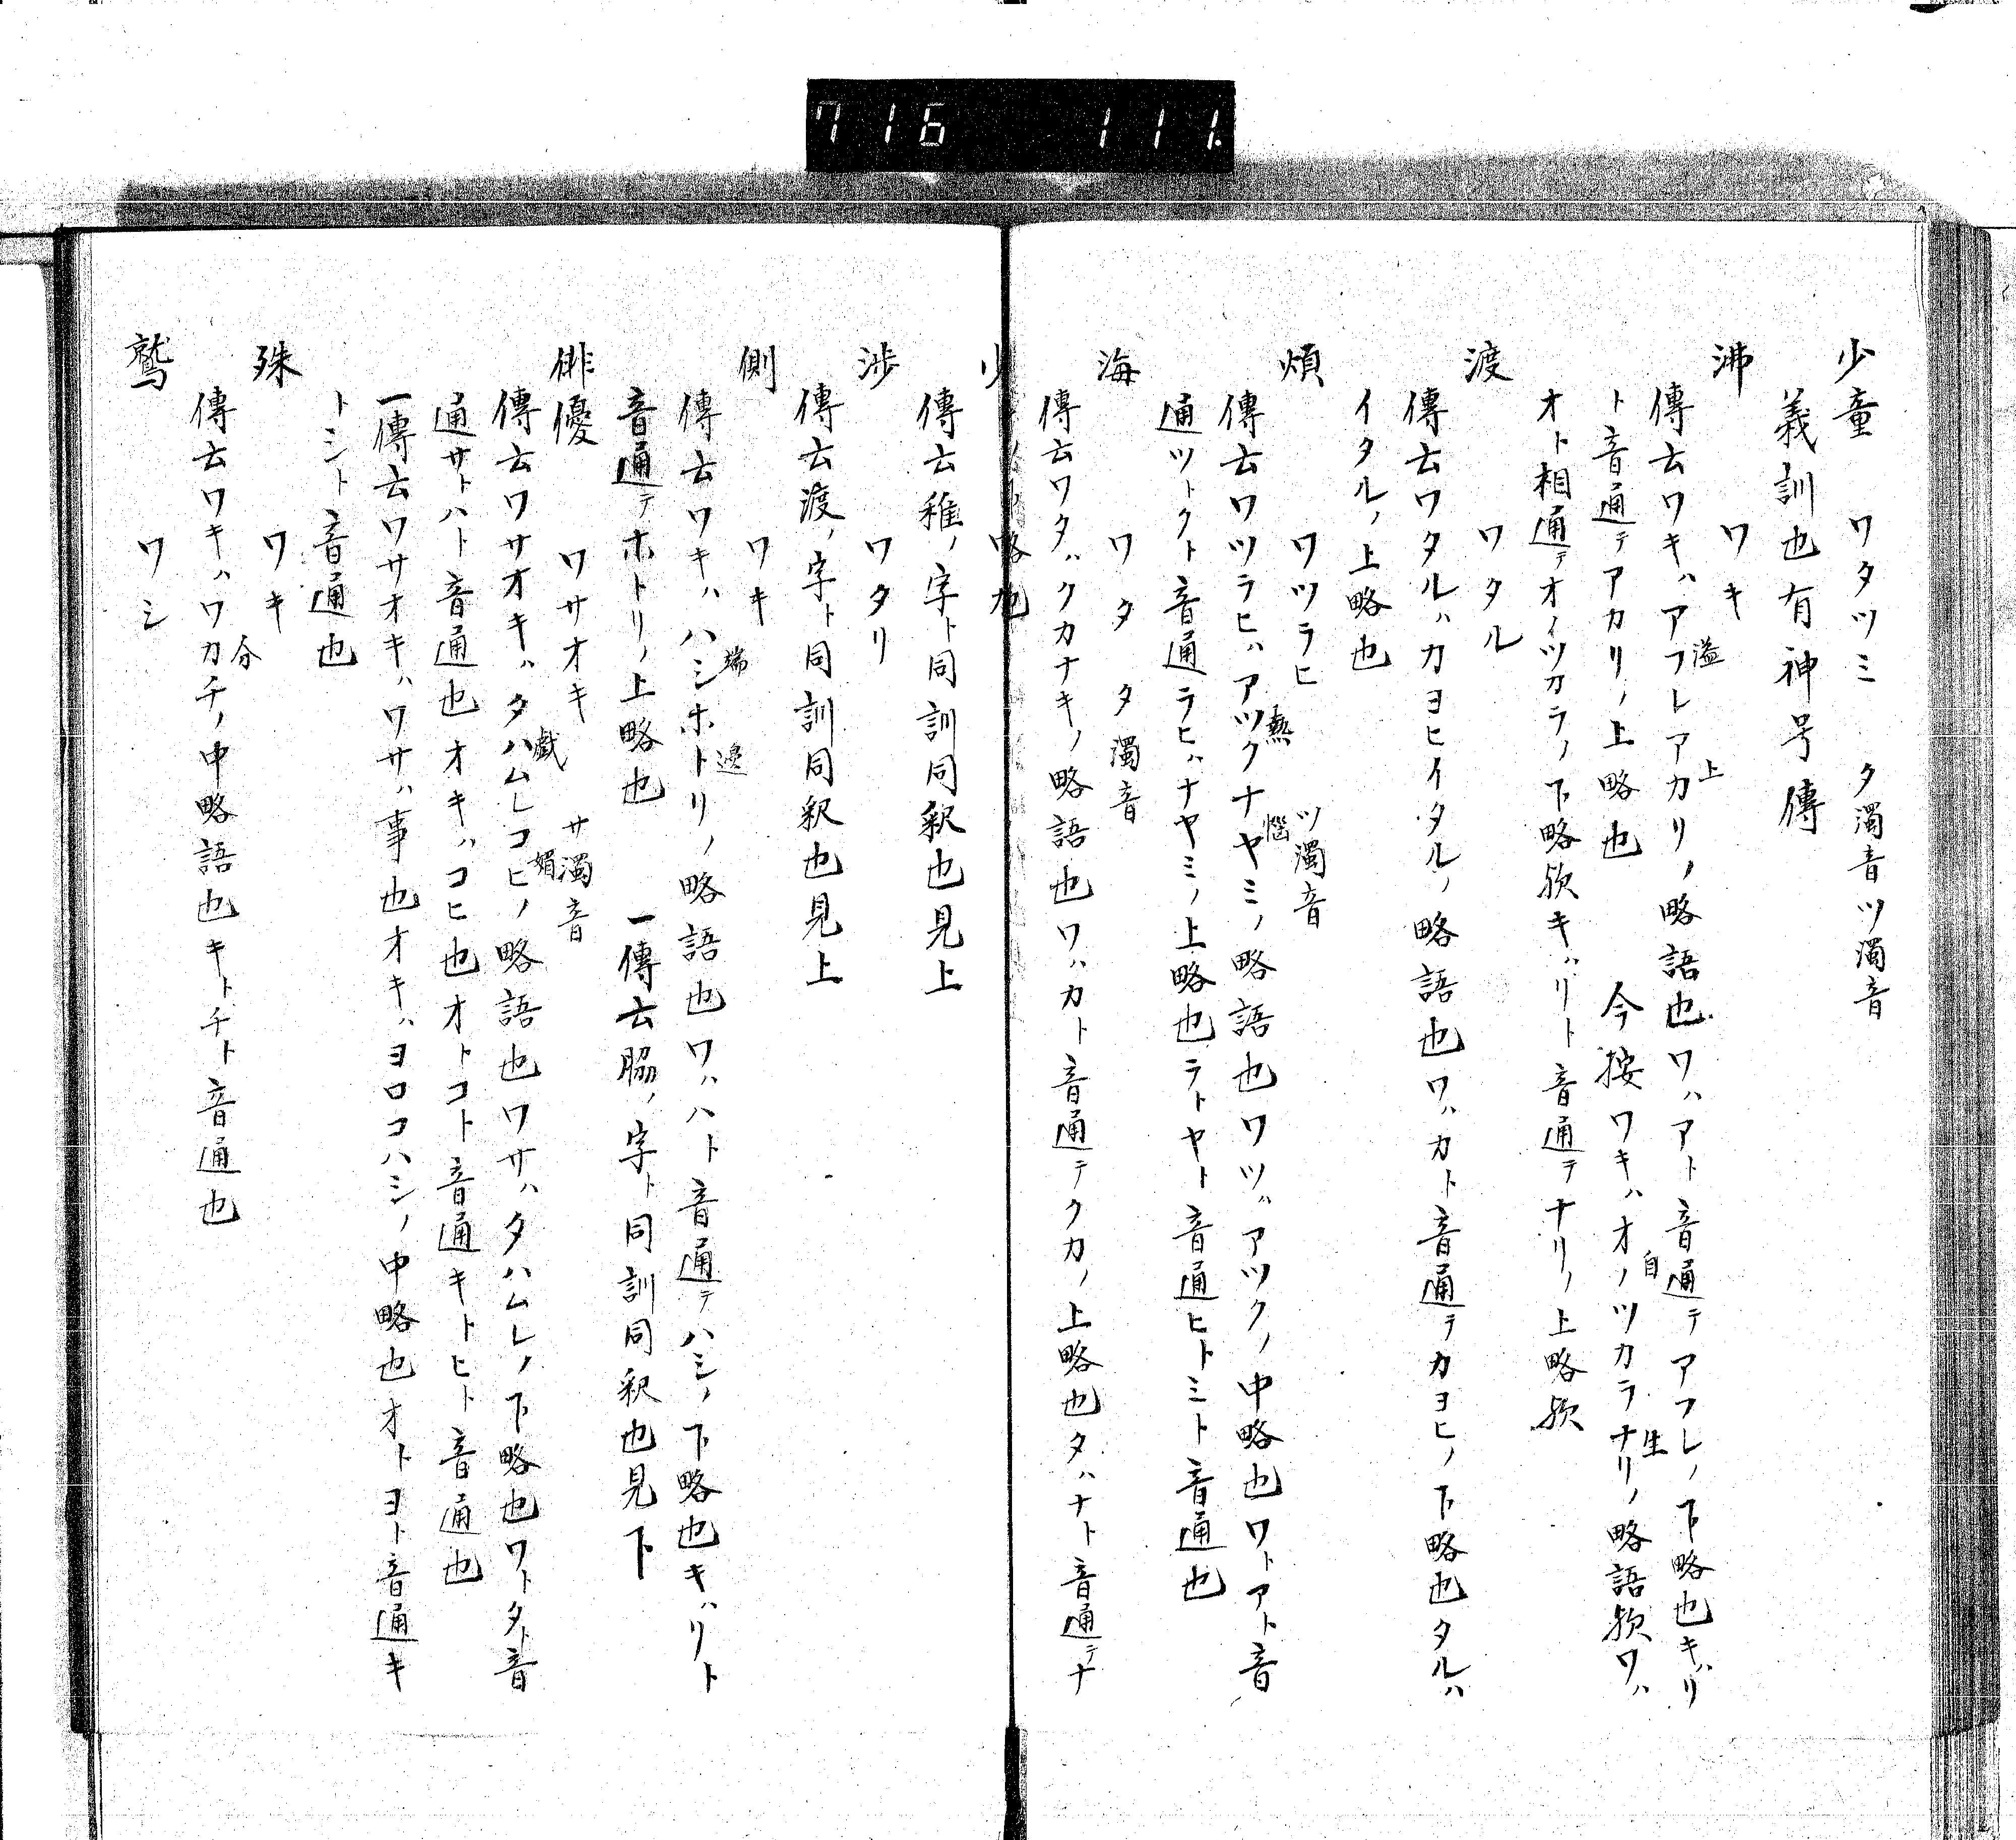 716 111.
少童 ワタツミ タ濁音ツ濁音
義訓也有神号傳
沸 ワキ
溢 上
傳云ワキハアフレアカリノ略語也ワハアト音通テアフレノ下略也キハリ
ト音通テアカリノ上略也 今按ワキハオノツカラナリノ略語欤ワハ
自 生
オト相通テオノツカラノ下略欤キハリト音通テナリノ上略欤
渡 ワタル
傳云ワタルハカヨヒイタルノ略語也ワハカト音通テカヨヒノ下略也タルハ
イタルノ上略也
煩 ワツラヒ ツ濁音
熱 惱
傳云ワツラヒハアツクナヤミノ略語也ワツハアツクノ中略也ワトアト音
通ツトクト音通ラヒハナヤミノ上略也ラトヤト音通ヒトミト音通也
海 ワタ タ濁音
傳云ワタハクカナキノ略語也ワハカト音通テクカノ上略也タハナト音通テナ
略也
少
傳云稚ノ字ト同訓同釈也見上
渉 ワタリ
傳云渡ノ字ト同訓同釈也見上
側 ワキ
端 邊
傳云ワキハハシホトリノ略語也ワハハト音通テハシノ下略也キハリト
音通テホトリノ上略也 一傳云脇ノ字ト同訓同釈也見下
俳優 ワサオキ サ濁音
戯 媚
傳云ワサオキハタハムレコヒノ略語也ワサハタハムレノ下略也ワトタト音
通サトハト音通也オキハコヒ也オトコト音通キトヒト音通也
一傳云ワサオキハワサハ事也オキハヨロコハシノ中略也オトヨト音通キ
トシト音通也
殊 ワキ
分
傳云ワキハワカチノ中略語也キトチト音通也
鷲 ワシ